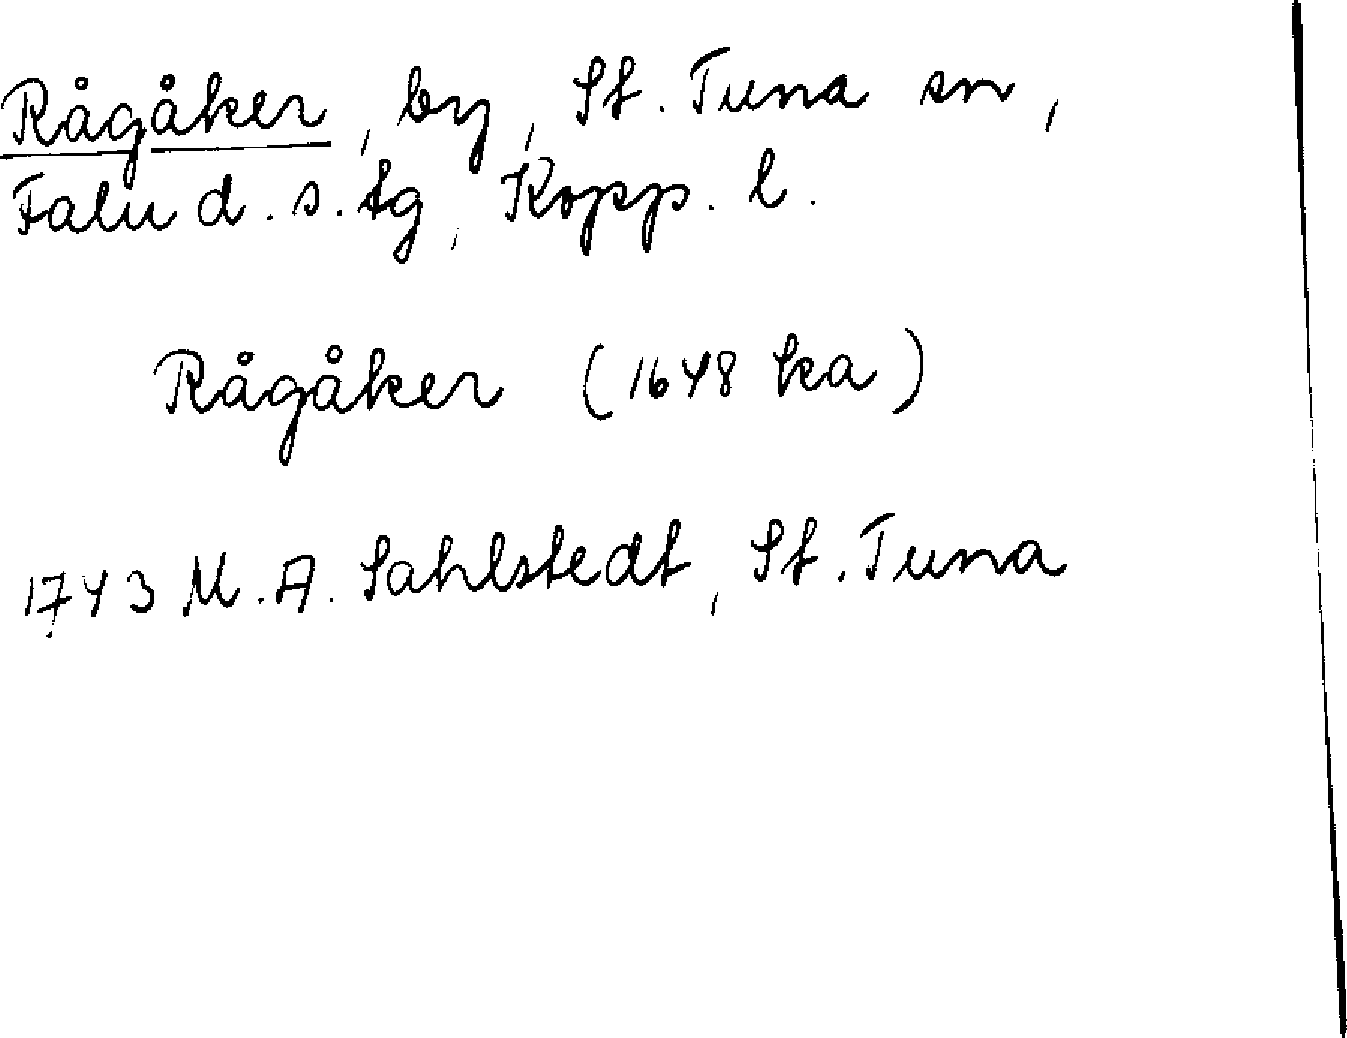 Rågåker, by, St. Tuna sn,
Falu d. s. tg, Kopp. l.
Rågåker (1648 ka)
1743 M. A. Sahlstedt, St. Tuna